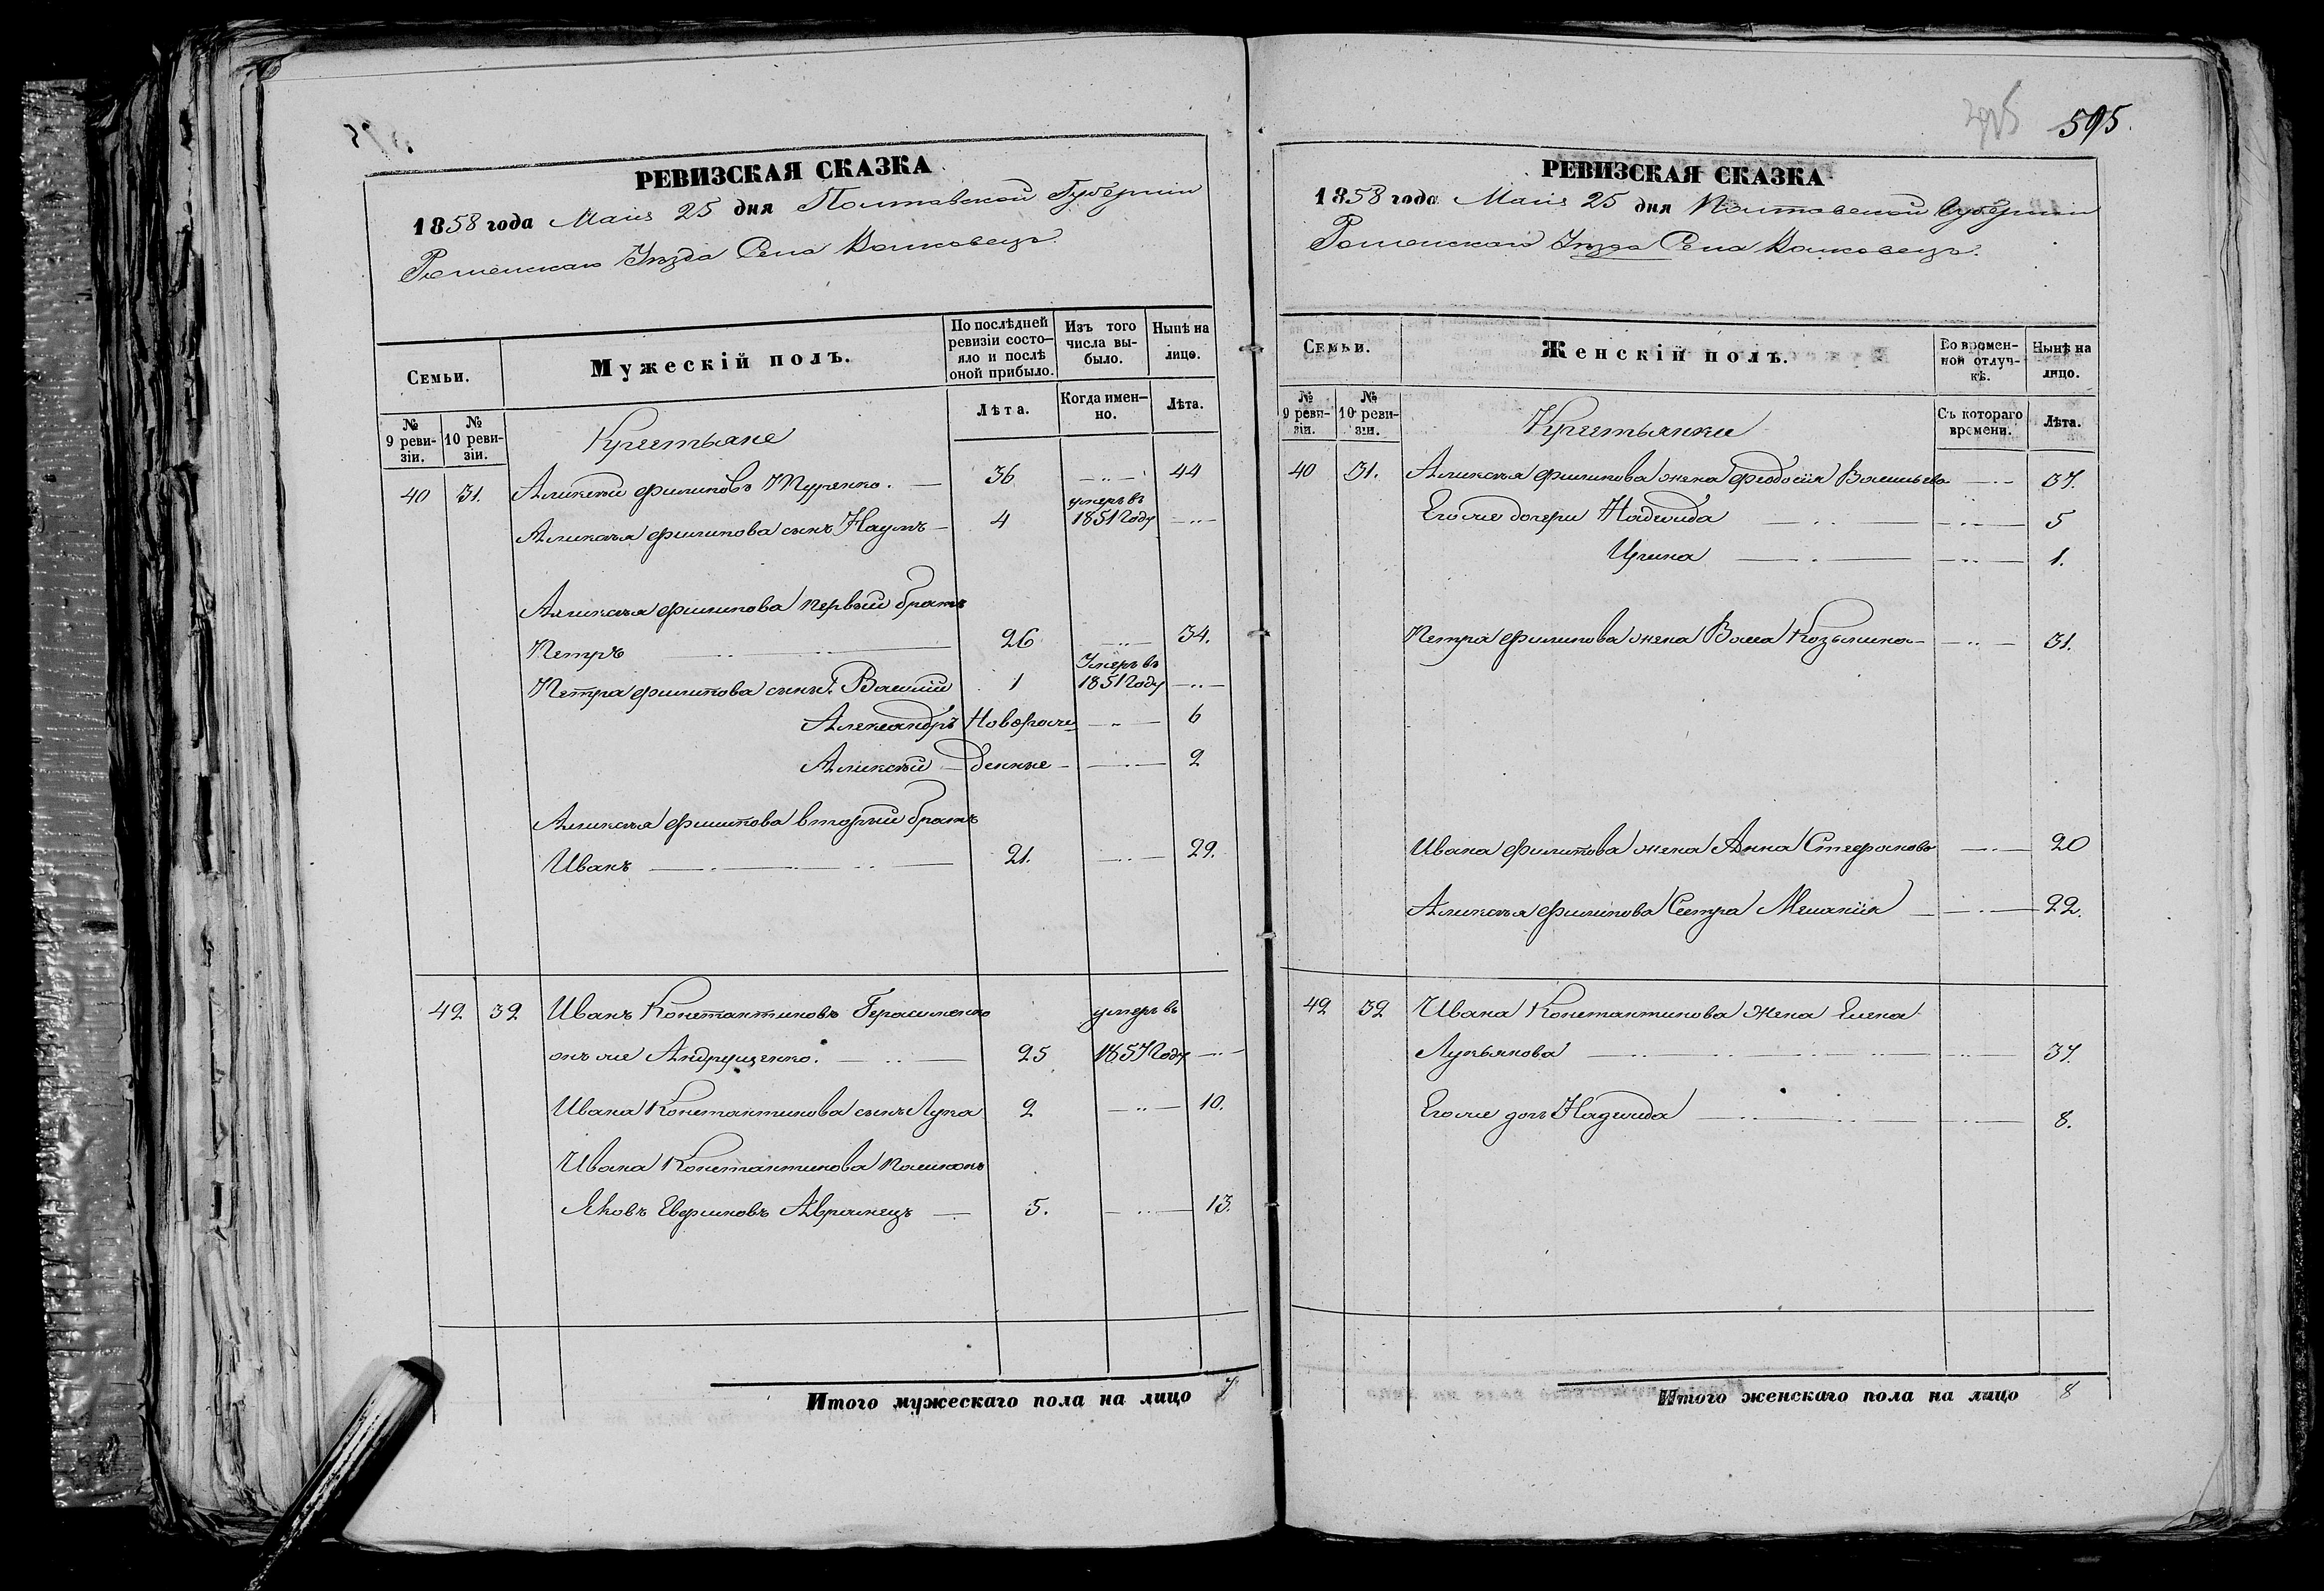 РЕВИЗСКАЯ СКАЗКА
1858 года Маия 25 дня Полтавской Губернии
Роменскаго Уезда Села Волковецъ.
Семьи.
Мужескій полъ.
По послѣдней ревизіи состояло и послѣ оной прибыло.
Изъ того числа выбыло.
Нынѣ на лицо.
№ 9 ревизіи.
№ 10 ревизіи.
Лѣта.
Когда именно.
Лѣта.
Крестьяне
40 31. Аликсѣй Филиповъ 36 44
Аликсѣя Филипова сынъ Наумъ 4 умеръ въ 1851 Году
Аликсѣя Филипова первый братъ
Петръ 26 34.
Петра Филипова сынъ 1. Василій 1 Умеръ въ 1851 Году
Александръ Новорож 6
Аликсѣй денные 2
Аликсѣя Филипова вторый братъ
Иванъ 21. 29.
42 32 Иванъ Константиновъ Герасименко умеръ въ
онъ же Андрущенко. 25 1857 Году
Ивана Константинова сынъ Лука 2 10.
Ивана Константинова
Яковъ Евфимовъ 5. 13.
Итого мужескаго пола на лицо 7
595.
РЕВИЗСКАЯ СКАЗКА
1858 года Маия 25 дня Полтавской Губернии
Роменскаго Уезда Села Волковецъ.
Семьи.
Женскій полъ.
Во временной отлучкѣ.
Нынѣ на лицо.
№ 9 ревизіи.
№ 10 ревизіи.
Съ котораго времени.
Лѣта.
Крестьянки
40 31. Аликсѣя Филипова жена Феодосія Васильева 37.
Его же дочери Надежда 5
Ирина 1.
Петра Филипова жена Васса Козьмина 31.
Ивана Филипова жена Анна Стефанова 20
Аликсѣя Филипова Сестра Меланія 22.
42 32 Ивана Константинова Жена Елена
Лукьянова 37.
Его же дочь Надежда 8.
Итого женскаго пола на лицо 8